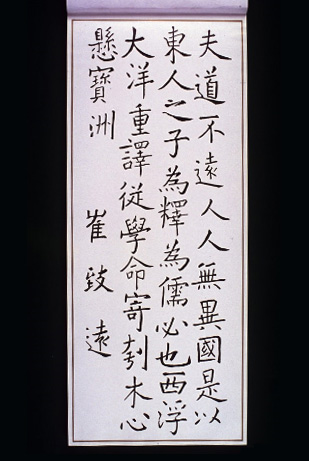 夫道不遠人人無異國是以
東人之子為釋為儒必也西浮
大洋重譯從學命寄刳木心
懸寶洲 崔致遠